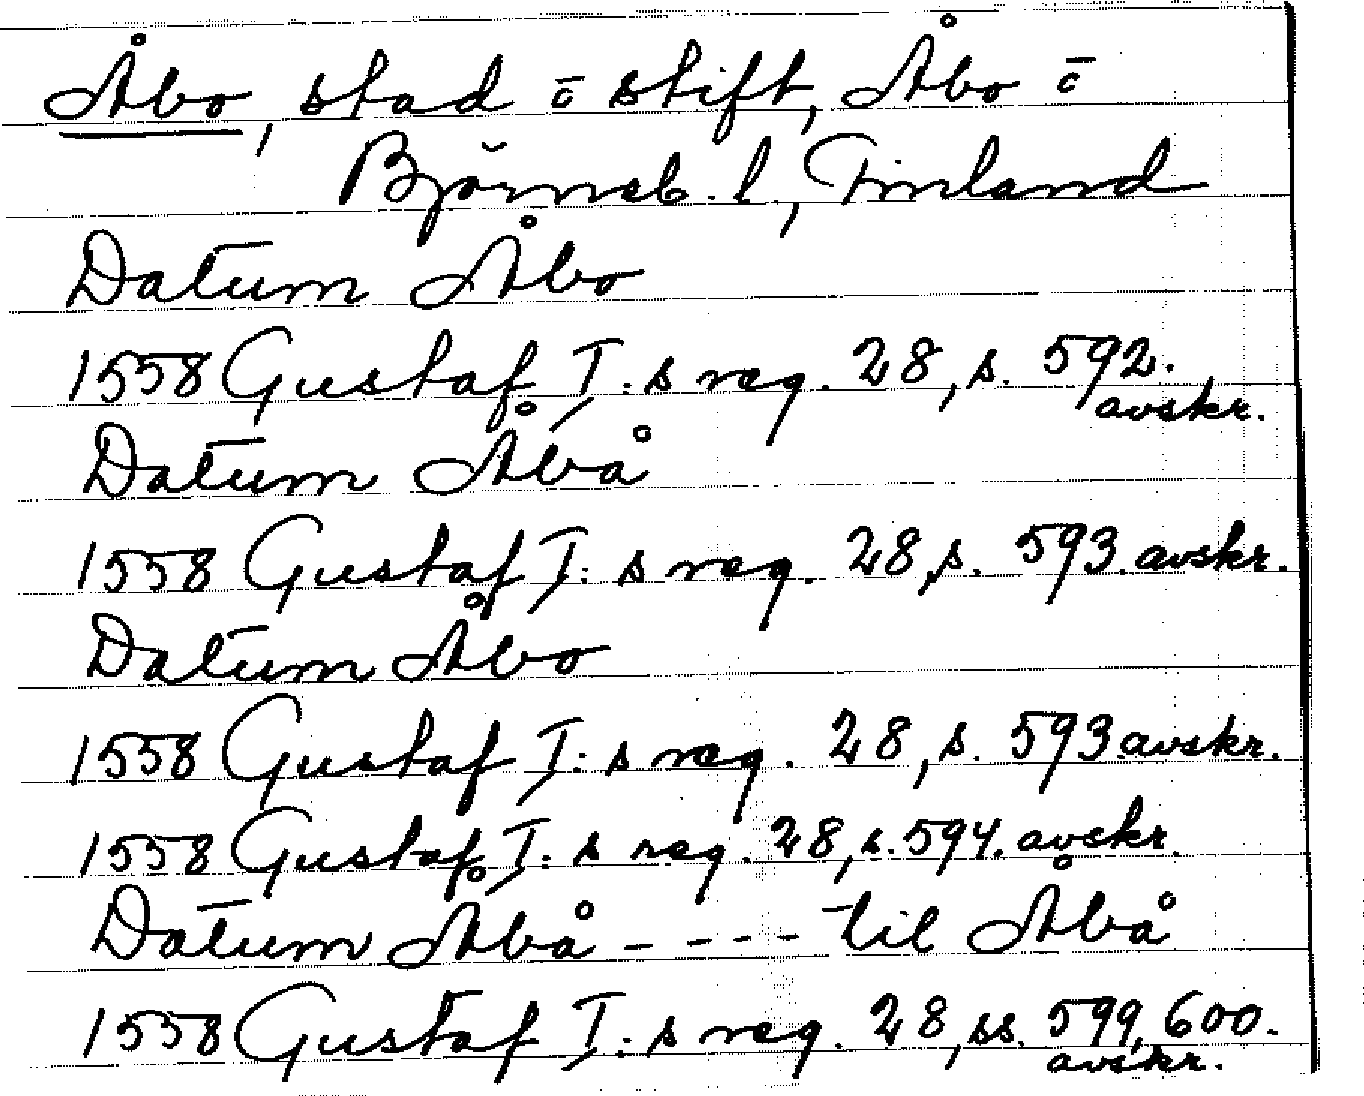 Åbo, stad o stift, Åbo o
Björneb. l, Finland
Datum Åbo
1558 Gustaf I:s reg. 28, s. 592.
avskr.
Datum Åbå
1558 Gustaf I:s reg. 28, s. 593. avskr.
Datum Åbo
1558 Gustaf I:s reg. 28, s. 593 avskr.
1558 Gustaf I:s reg. 28, s. 594. avskr.
Datum Åbå - - - - til Åbå
1558 Gustaf I:s reg. 28, ss. 599, 600.
avskr.